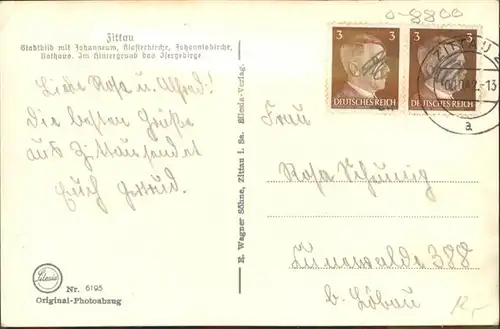 o-8800
Zittau
Stadtbild mit Johanneum, Klosterkirche, Johanniskirche,
Rathaus. Im Hintergrund das Isergebirge
Liebe Rosa u. Alfred!
Die besten Grüße
aus Zittau sendet
Euch
R. Wagner Söhne, Zittau i. Sa. Silesia-Verlag.
Silesia
Nr. 6195
Original-Photoabzug
3 3
DEUTSCHES REICH
3 3
DEUTSCHES REICH
ZITTAU
a
Frau
Rosa
388
b. Löbau
12,-